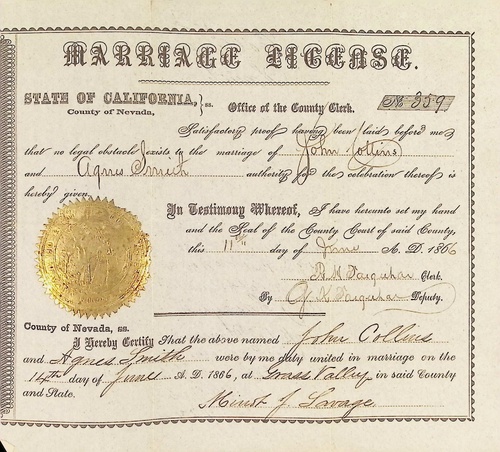 MARRIAGE LICENSE.
STATE OF CALIFORNIA, } ss.
County of Nevada,
Office of the County Clerk.
No 359
Satisfactory proof having been laid before me
that no legal obstacle exists to the marriage of John Collins
and Agnes Smith authority for the celebration thereof is
hereby given.
In Testimony Whereof, I have hereunto set my hand
and the Seal of the County Court of said County,
this 11th day of June A. D. 1866
Farquhar Clerk.
By Farquhar Deputy.
County of Nevada, ss.
I Hereby Certify That the above named John Collins
and Agnes Smith were by me duly united in marriage on the
14th day of June A. D. 1866, at Grass Valley in said County
and State.
J. Savage.